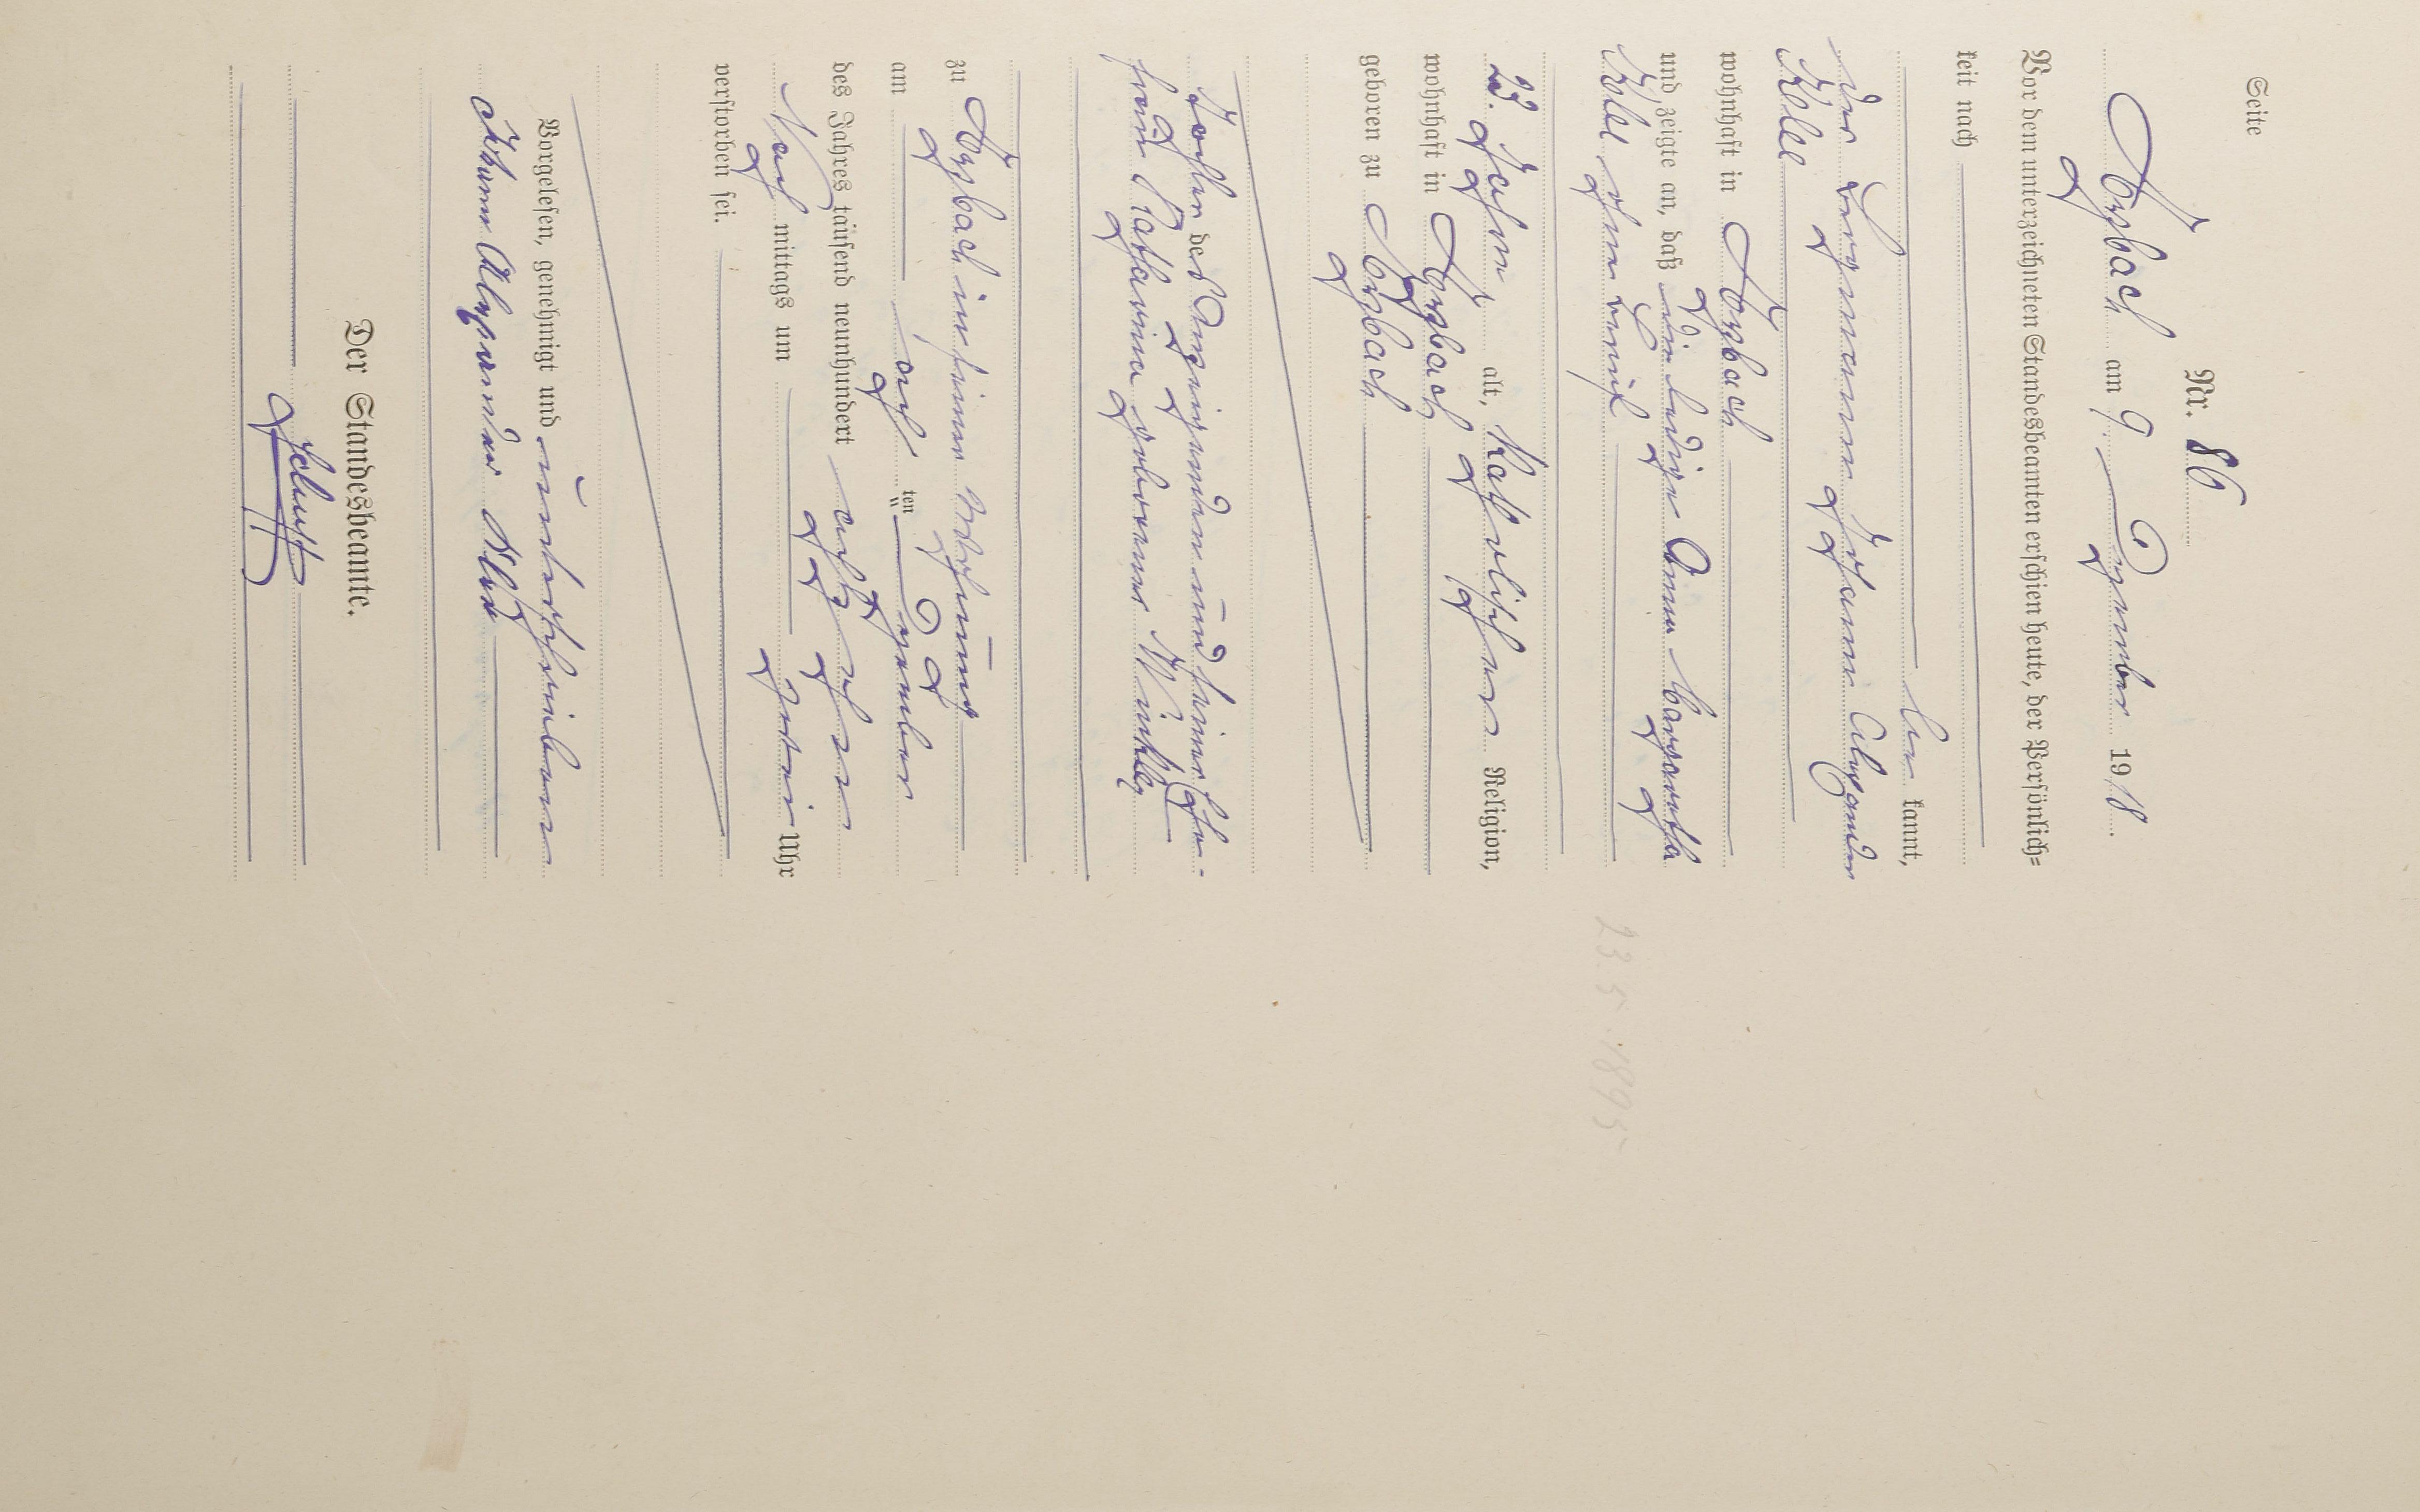 Seite
Nr. 86
am 9. Dezember 1918.
Vor dem unterzeichneten Standesbeamten erschien heute, der Persönlich=
keit nach
kannt,
der Bergmann Johann Alexander
wohnhaft in
und zeigte an, daß die ledige Anna Margaretha
ohne Beruf
23 Jahre alt, katholischer Religion,
wohnhaft in
geboren zu
Tochter des Anzeigenden und seiner Ehe-
frau Katharina geborener
zu in seiner Wohnung
am acht ten Dezember
des Jahres tausend neunhundert achtzehn
Nach mittags um zwei Uhr
verstorben sei.
Vorgelesen, genehmigt und unterschrieben
Johann Alexander
Der Standesbeamte.
23.5.1895